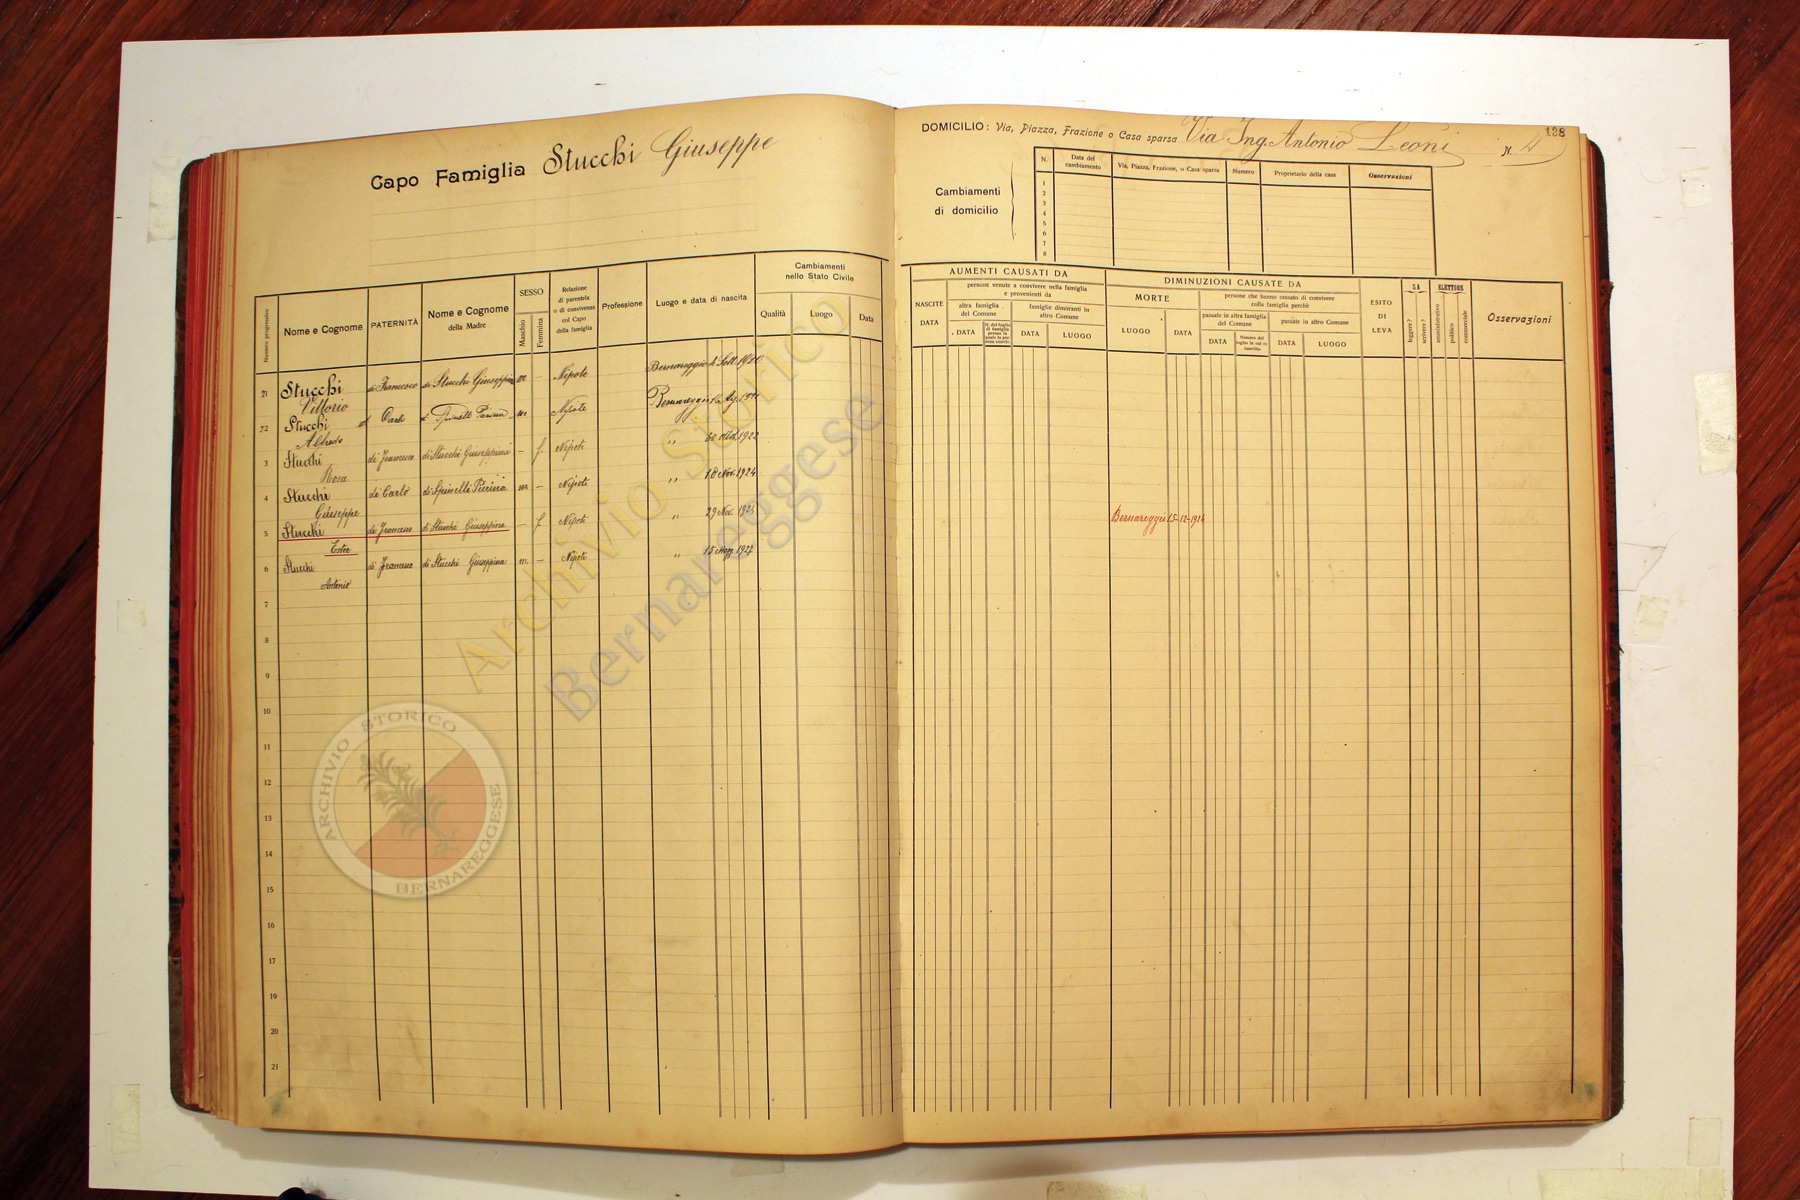 Capo Famiglia Stucchi Giuseppe
DOMICILIO: Via, Piazza, Frazione o Casa sparsa Via Ing. Antonio Leoni N. 4
138
Cambiamenti di domicilio
N. Data del cambiamento Via, Piazza, Frazione, o Casa sparsa Numero Proprietario della casa Osservazioni
1
2
3
4
5
6
7
8
Numero progressivo
Nome e Cognome
PATERNITÀ
Nome e Cognome della Madre
SESSO
Maschio Femmina
Relazione di parentela o di convivenza col Capo della famiglia
Professione
Luogo e data di nascita
Cambiamenti nello Stato Civile
Qualità Luogo Data
AUMENTI CAUSATI DA
NASCITE DATA
persone venute a convivere nella famiglia e provenienti da
altra famiglia del Comune
DATA
famiglie dimoranti in altro Comune
DATA LUOGO
DIMINUZIONI CAUSATE DA
MORTE
LUOGO DATA
persone che hanno cessato di convivere colla famiglia perchè
passate in altra famiglia del Comune
DATA Numero del foglio in cui si inscrive
passate in altro Comune
DATA LUOGO
ESITO DI LEVA
SA
leggere? scrivere?
ELETTORE
amministrativo politico commerciale
Osservazioni
21 Stucchi Vittorio di Francesco di Stucchi Giuseppina m - Nipote Bernareggio 4 Sett. 1920
22 Stucchi Alfredo di Carlo di Spinelli Pierina m. Nipote Bernareggio Ag. 1921
3 Stucchi Rosa di Francesco di Stucchi Giuseppina - f. Nipote " 30 Ott. 1922
4 Stucchi Giuseppe di Carlo di Spinelli Pierina m. - Nipote " 18 Nov. 1924
5 Stucchi Ester di Francesco di Stucchi Giuseppina - f Nipote " 29 Nov. 1924 Bernareggio 15-12-1924
6 Stucchi Antonio di Francesco di Stucchi Giuseppina m. - Nipote " 15 Magg. 1927
7
8
9
10
11
12
13
14
15
16
17
18
19
20
21
Archivio Storico
Bernareggese
ARCHIVIO STORICO BERNAREGGESE